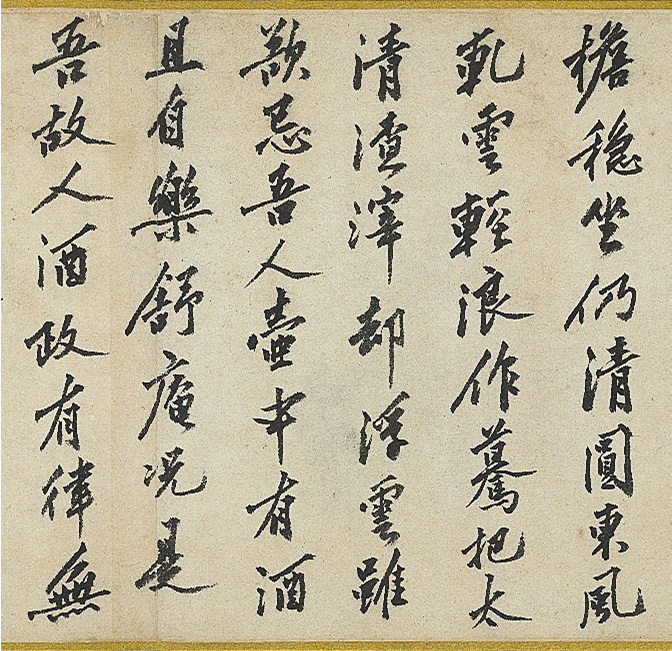 檐穏坐仍清圓東風
軋雲輕浪作驀把太
清渣滓却浮雲雖
歘忌吾人壺中有酒
且自樂舒庵况是
吾故人酒政有律無